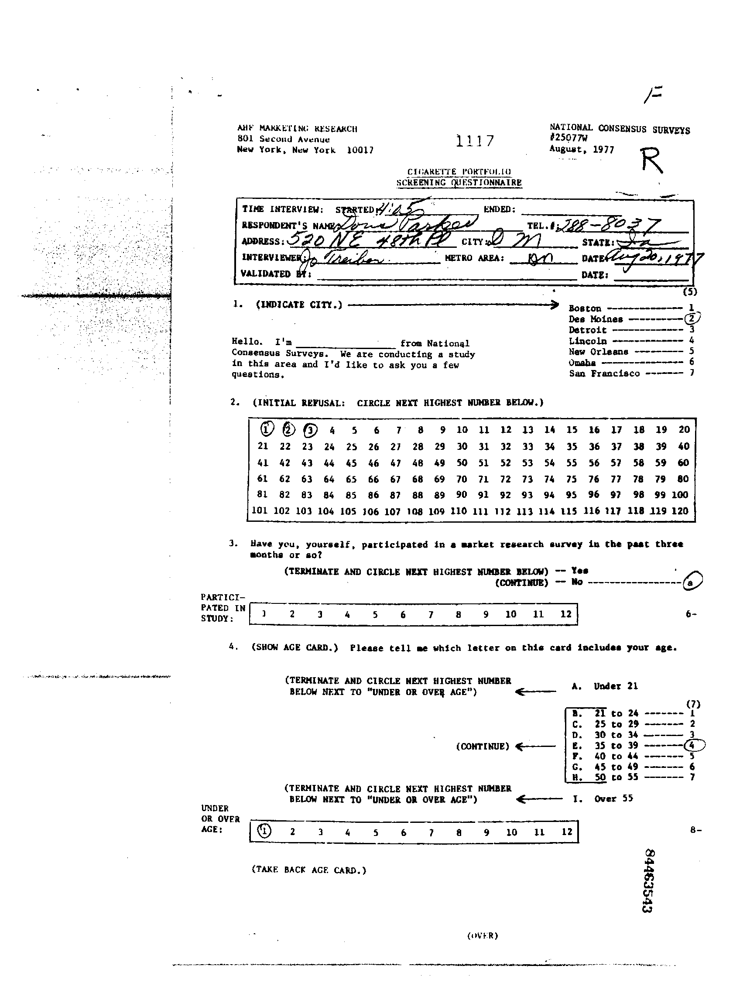 F
AHF MARKETING RESEARCH
801 Second Avenue
New York, New York 10017
1117
NATIONAL CONSENSUS SURVEYS
#25077W
August, 1977
R
CIGARETTE PORTFOLIO
SCREENING QUESTIONNAIRE
TIME INTERVIEW: STARTED: 4:25 ENDED:
RESPONDENT'S NAME: Parker TEL.#: 288-8037
ADDRESS: 520 NE 48th Pl CITY: D M STATE: Ia
INTERVIEWER: Jo Treiber METRO AREA: DM DATE: Aug 20, 1977
VALIDATED BY: DATE:
(5)
1. (INDICATE CITY.)
Boston ---------- 1
Des Moines --------- 2
Detroit --------- 3
Lincoln --------- 4
New Orleans ----- 5
Omaha ----------- 6
San Francisco ------- 7
Hello. I'm __________ from National
Consensus Surveys. We are conducting a study
in this area and I'd like to ask you a few
questions.
2. (INITIAL REFUSAL: CIRCLE NEXT HIGHEST NUMBER BELOW.)
1 2 3 4 5 6 7 8 9 10 11 12 13 14 15 16 17 18 19 20
21 22 23 24 25 26 27 28 29 30 31 32 33 34 35 36 37 38 39 40
41 42 43 44 45 46 47 48 49 50 51 52 53 54 55 56 57 58 59 60
61 62 63 64 65 66 67 68 69 70 71 72 73 74 75 76 77 78 79 80
81 82 83 84 85 86 87 88 89 90 91 92 93 94 95 96 97 98 99 100
101 102 103 104 105 106 107 108 109 110 111 112 113 114 115 116 117 118 119 120
3. Have you, yourself, participated in a market research survey in the past three
months or so?
(TERMINATE AND CIRCLE NEXT HIGHEST NUMBER BELOW) -- Yes
(CONTINUE) -- No --------------- a
PARTICI-
PATED IN
STUDY: 1 2 3 4 5 6 7 8 9 10 11 12 6-
4. (SHOW AGE CARD.) Please tell me which letter on this card includes your age.
(TERMINATE AND CIRCLE NEXT HIGHEST NUMBER
BELOW NEXT TO "UNDER OR OVER AGE") A. Under 21
(7)
B. 21 to 24 ------- 1
C. 25 to 29 ------- 2
D. 30 to 34 ------- 3
(CONTINUE) E. 35 to 39 ------- 4
F. 40 to 44 ------- 5
G. 45 to 49 ------- 6
H. 50 to 55 ------- 7
(TERMINATE AND CIRCLE NEXT HIGHEST NUMBER
BELOW NEXT TO "UNDER OR OVER AGE") I. Over 55
UNDER
OR OVER
AGE: 1 2 3 4 5 6 7 8 9 10 11 12 8-
(TAKE BACK AGE CARD.)
84463543
(OVER)